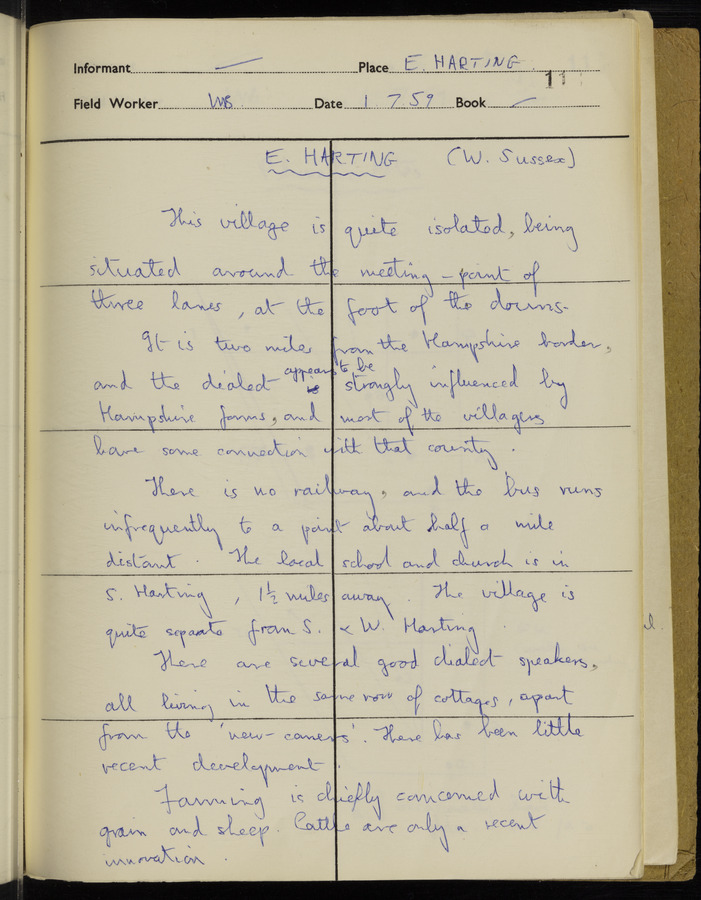 Informant — Place E. HARTING
11
Field Worker WB Date 1 7 59 Book —
E. HARTING (W. Sussex)
This village is quite isolated, being
situated around the meeting-point of
three lanes, at the foot of the downs.
It is two miles from the Hampshire border,
and the dialect is appears to be strongly influenced by
Hampshire forms, and most of the villagers
have some connection with that county.
There is no railway, and the bus runs
infrequently to a point about half a mile
distant. The local school and church is in
S. Harting, 1½ miles away. The village is
quite separate from S. & W. Harting.
There are several good dialect speakers,
all living in the same row of cottages, apart
from the 'new-comers'. There has been little
recent development.
Farming is chiefly concerned with
grain and sheep. Cattle are only a recent
innovation.